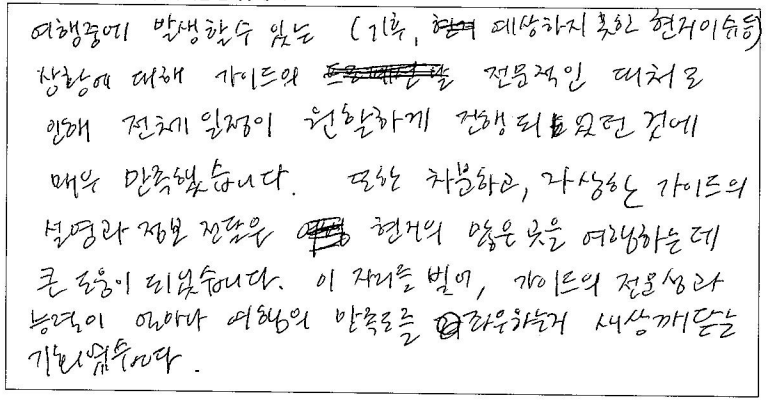 여행중에 발생할수 있는 (기후, 예상하지 못한 현지이슈등)
상황에 대해 가이드의 전문적인 대처로
인해 전체 일정이 원활하게 진행되었던 것에
매우 만족했습니다. 또한 차분하고, 자상한 가이드의
설명과 정보 전달은 현지의 많은 곳을 여행하는데
큰 도움이 되었습니다. 이 자리를 빌어, 가이드의 전문성과
능력이 얼마나 여행의 만족도를 좌우하는지 새삼 깨닫는
기회였습니다.